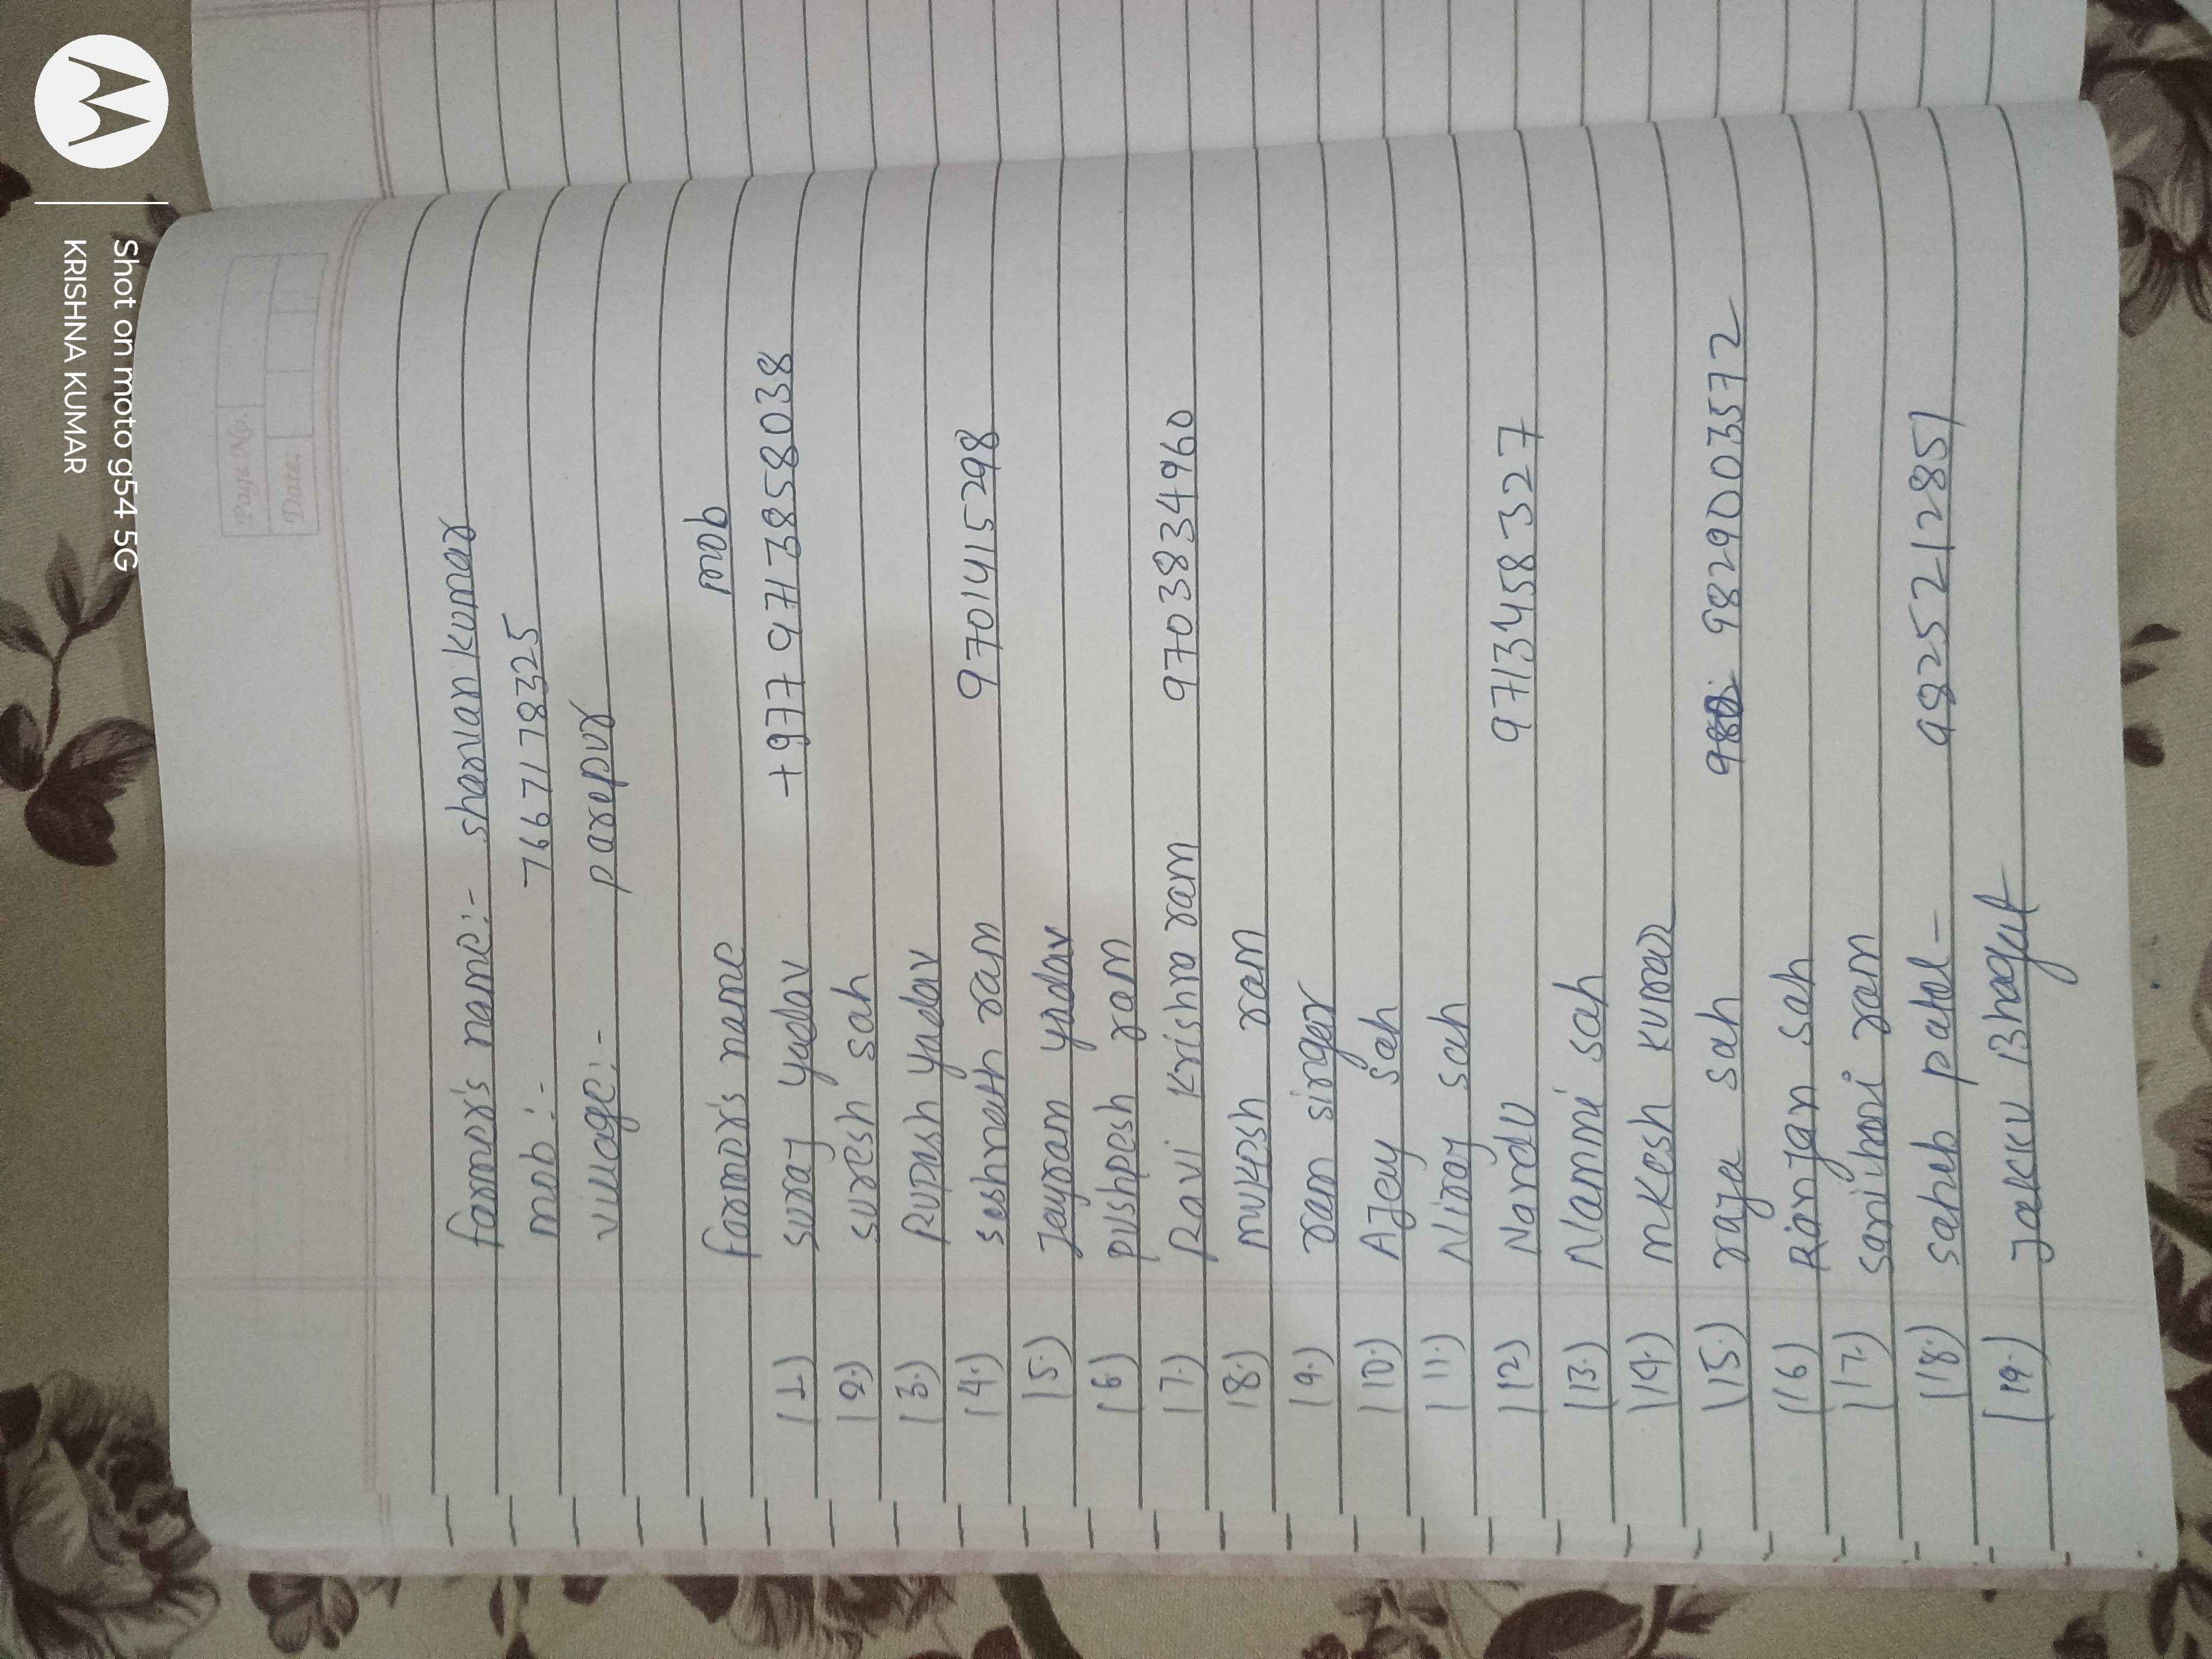 Page No.
Date:
farmer's name:- sharvan kumar
mob:- 7667178325
village:- parepur
farmer's name mob
(1) suraj yadav +977 9713858038
(2.) suresh sah
(3.) Rupesh yadav
(4.) seshnath ram 9701415298
(5.) Jayram yadav
(6.) pushpesh ram
(7.) Ravi Krishna ram 9703834960
(8.) mukesh ram
(9.) ram singer
(10.) AJay sah
(11.) Niraj sah
(12) Nandu 9713458327
(13.) Nanni sah
(14.) mkesh kumar
(15.) raja sah 9829003572
(16) Ranjan sah
(17.) ram
(18.) saheb patel - 9825212851
(19.) Jakku Bhagat
Shot on moto g54 5G
KRISHNA KUMAR